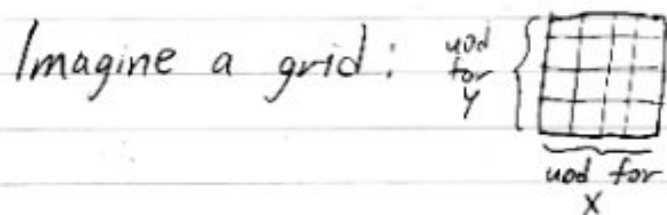 Imagine a grid:
uod
for
y
uod for
X